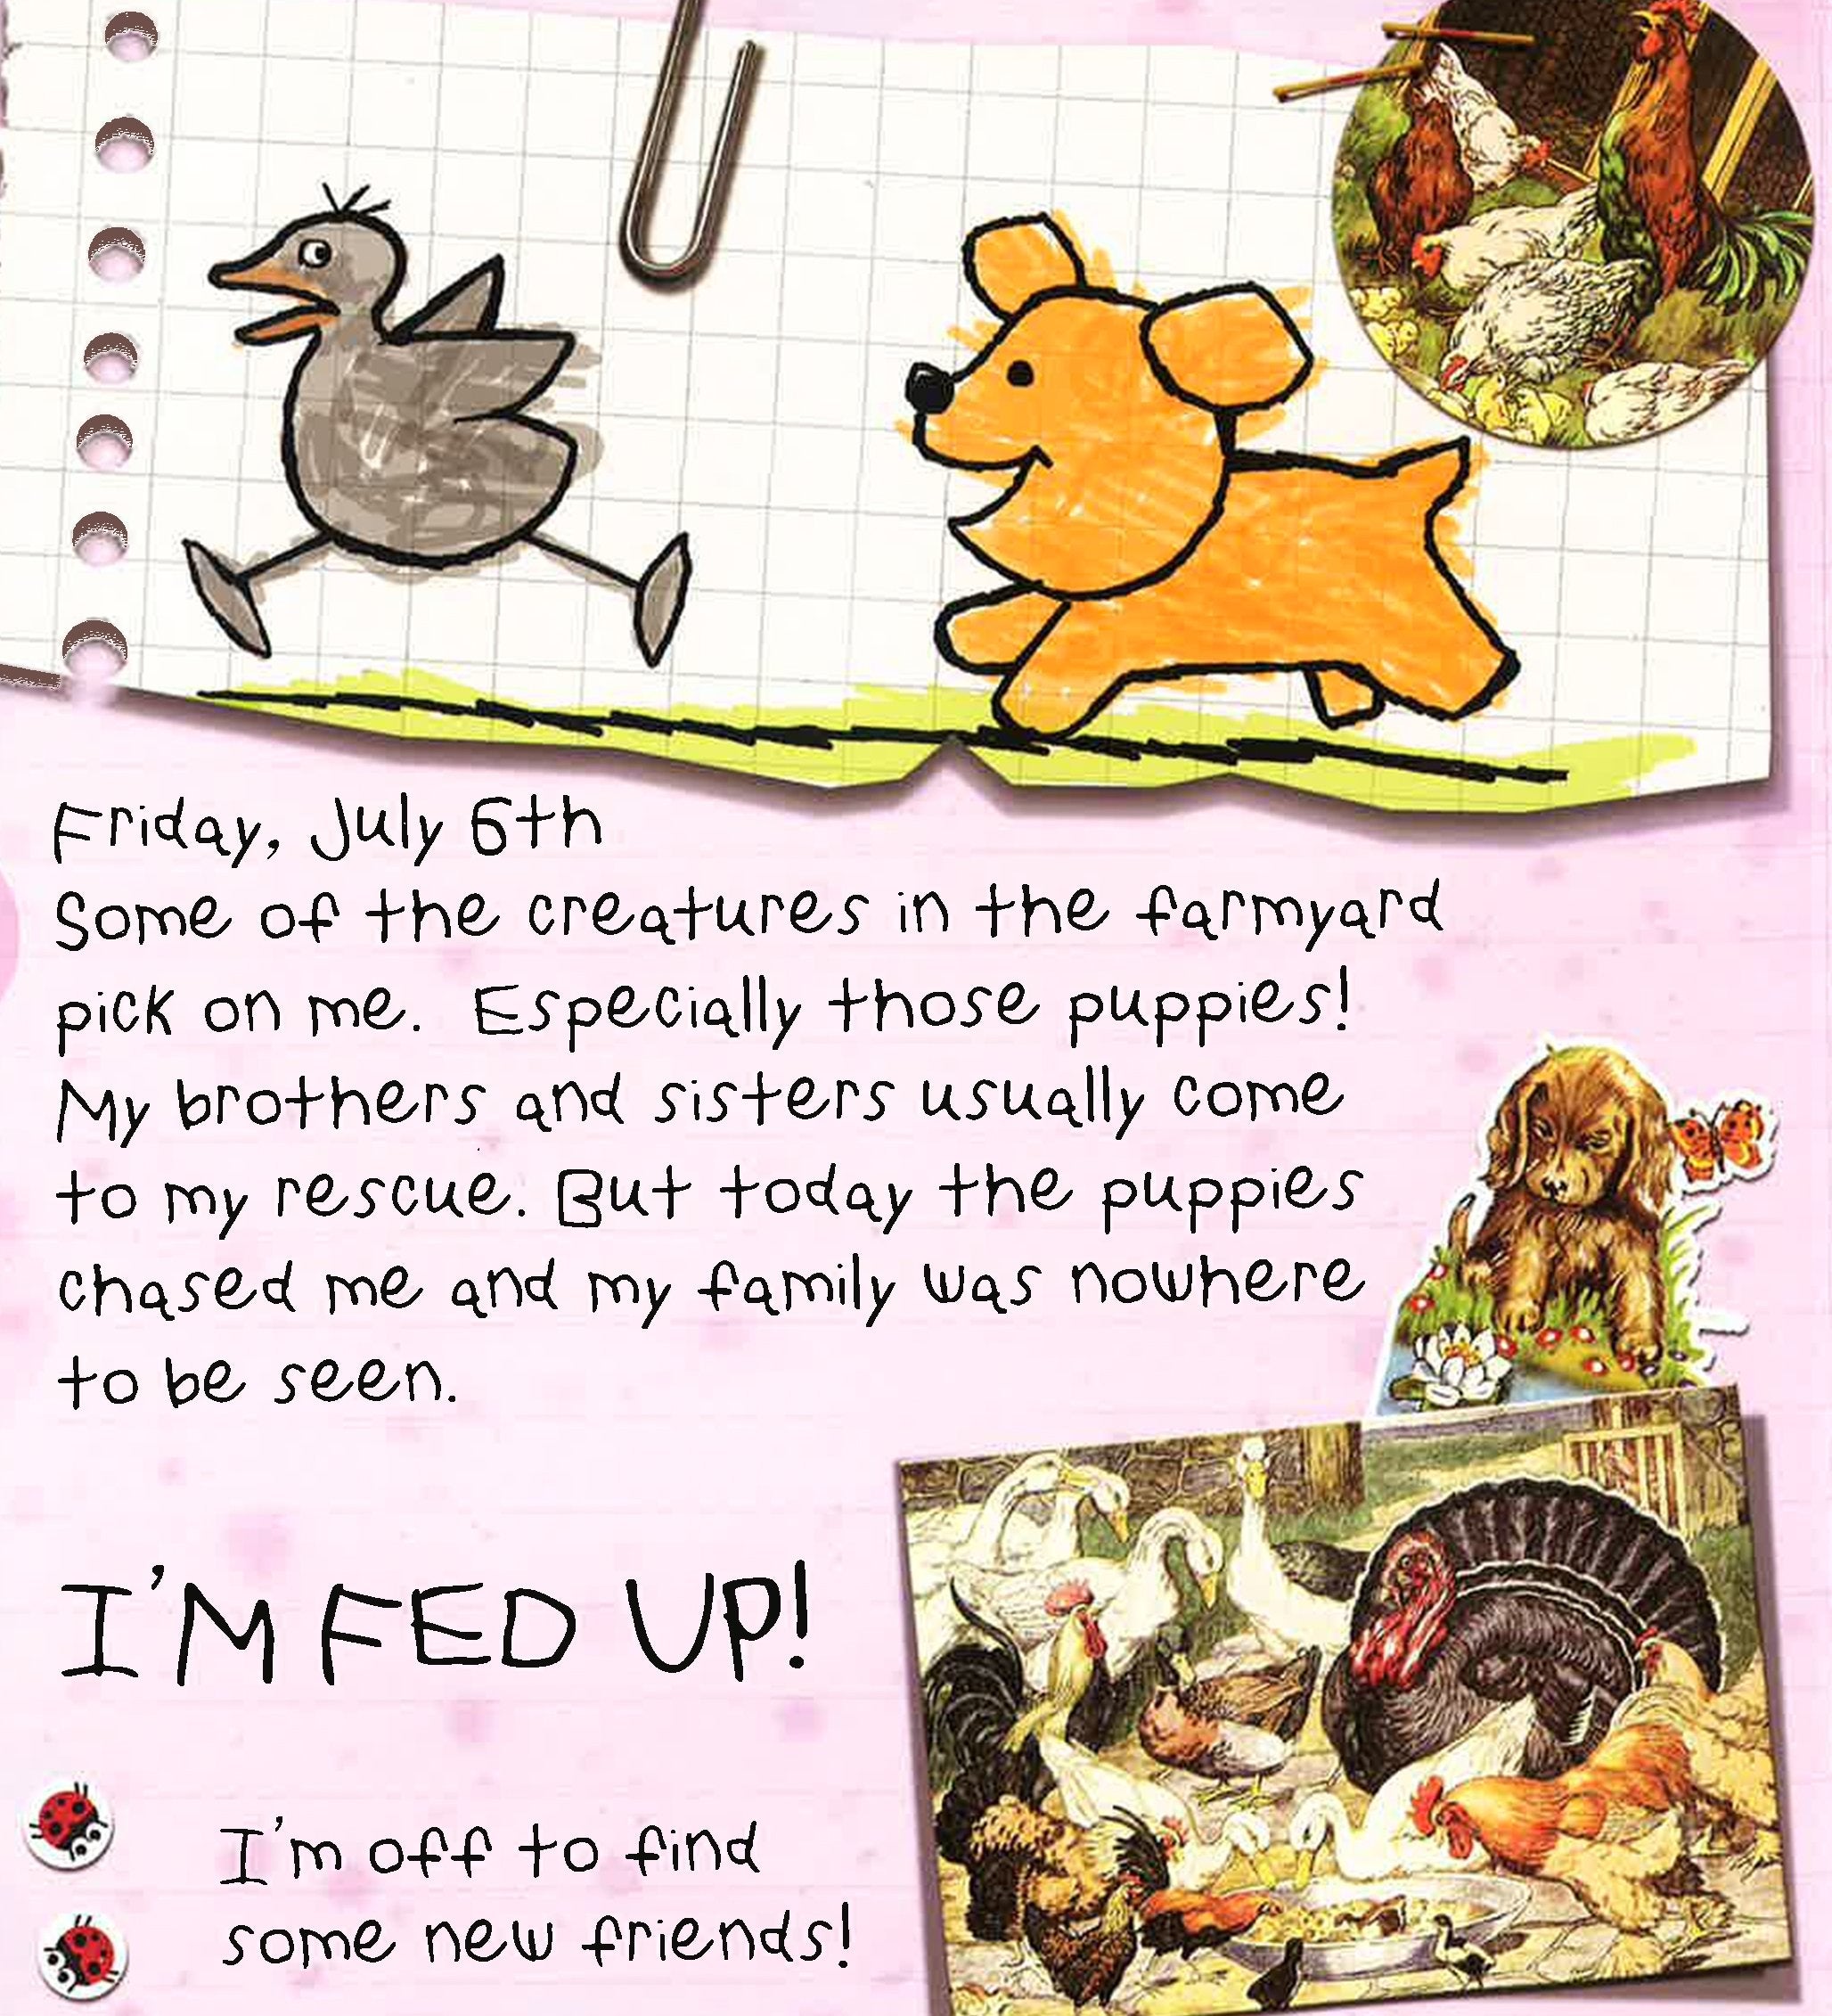 Friday, July 6th
Some of the creatures in the farmyard
pick on me. Especially those puppies!
My brothers and sisters usually come
to my rescue. But today the puppies
chased me and my family was nowhere
to be seen.
I'M FED UP!
I'm off to find
some new friends!